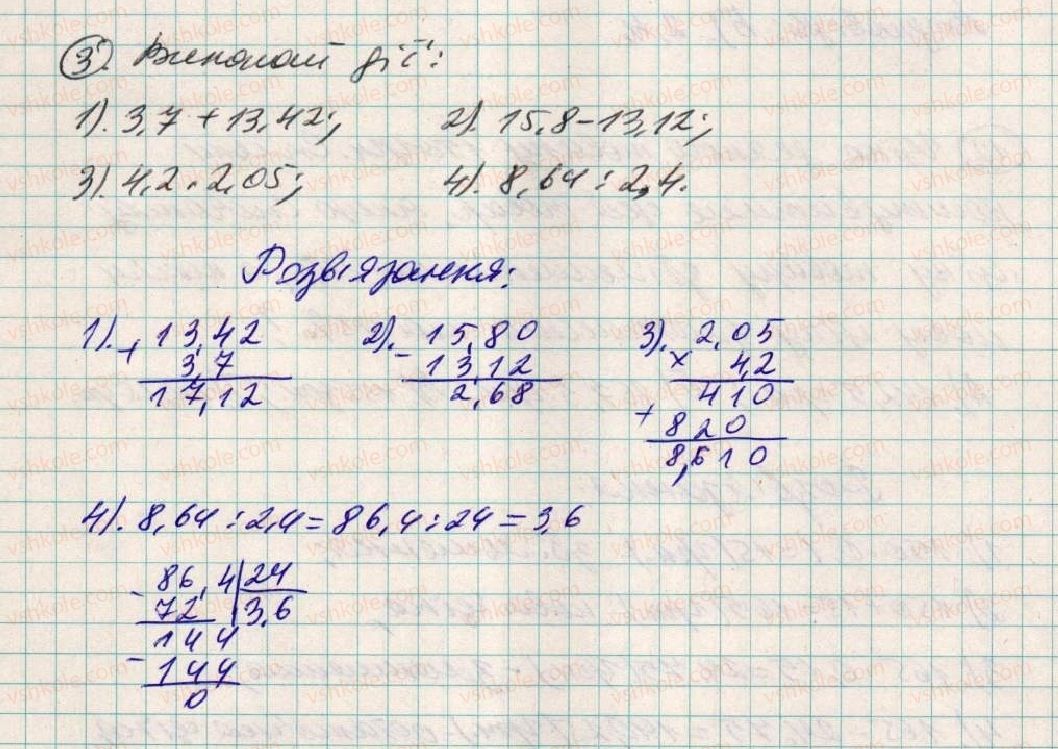 3. Виконай дії:
1). 3,7 + 13,42; 2). 15,8 - 13,12;
3). 4,2 · 2,05; 4). 8,64 : 2,4.
Розвязання:
1). + 13,42 2). - 15,80 3). × 2,05
3,7 13,12 4,2
17,12 2,68 410
+ 820
8,610
4). 8,64 : 2,4 = 86,4 : 24 = 3,6
- 86,4 | 24
72 | 3,6
144
- 144
0
vshkole.com